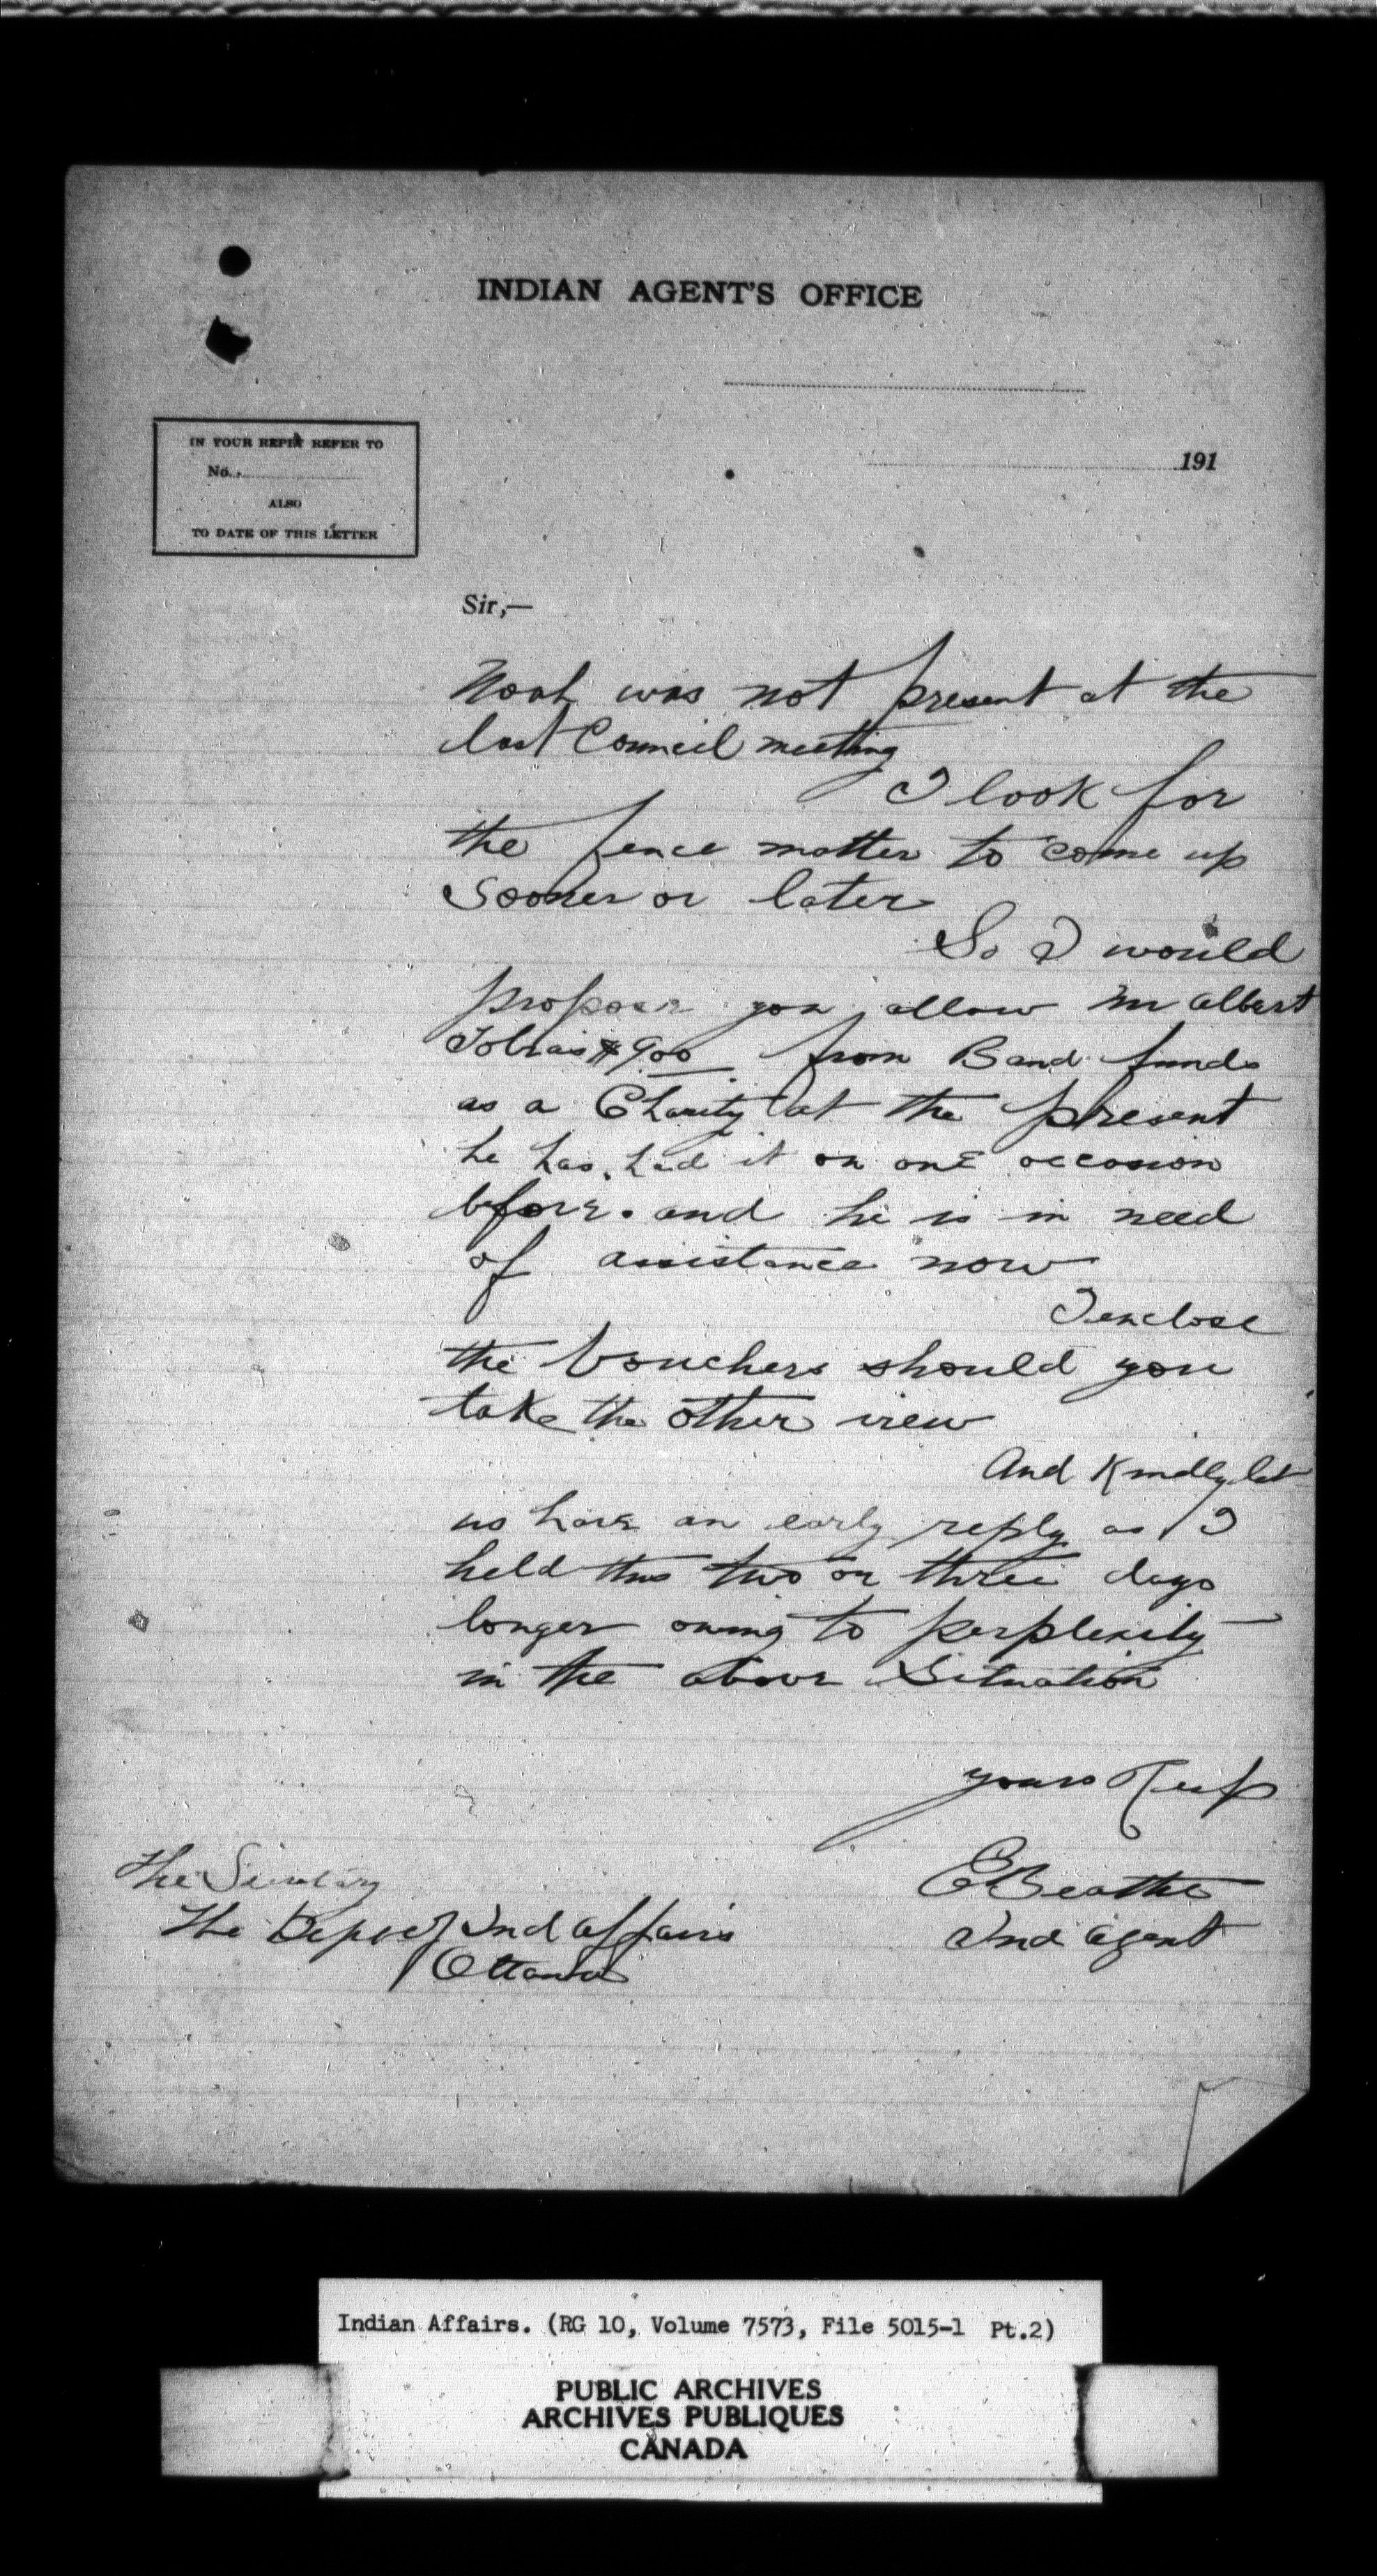 INDIAN AGENT'S OFFICE
191
IN YOUR REPLY REFER TO
No.
ALSO
TO DATE OF THIS LETTER
Sir,—
Noah was not present at the
last Council meeting
I look for
the fence matter to come up
sooner or later
So I would
propose you allow Mr Albert
Tobias $9 00 from Band funds
as a Charity at the present
he has had it on one occasion
before. and he is in need
of assistance now
I enclose
the Vouchers should you
take the other view
And Kindly let
us have an early reply as I
held this two or three days
longer owing to perplexity
in the above Situation
yours Resp
E Beattie
Ind Agent
The Secretary
The Dept of Ind Affairs
Ottawa
Indian Affairs. (RG 10, Volume 7573, File 5015-1 Pt.2)
PUBLIC ARCHIVES
ARCHIVES PUBLIQUES
CANADA